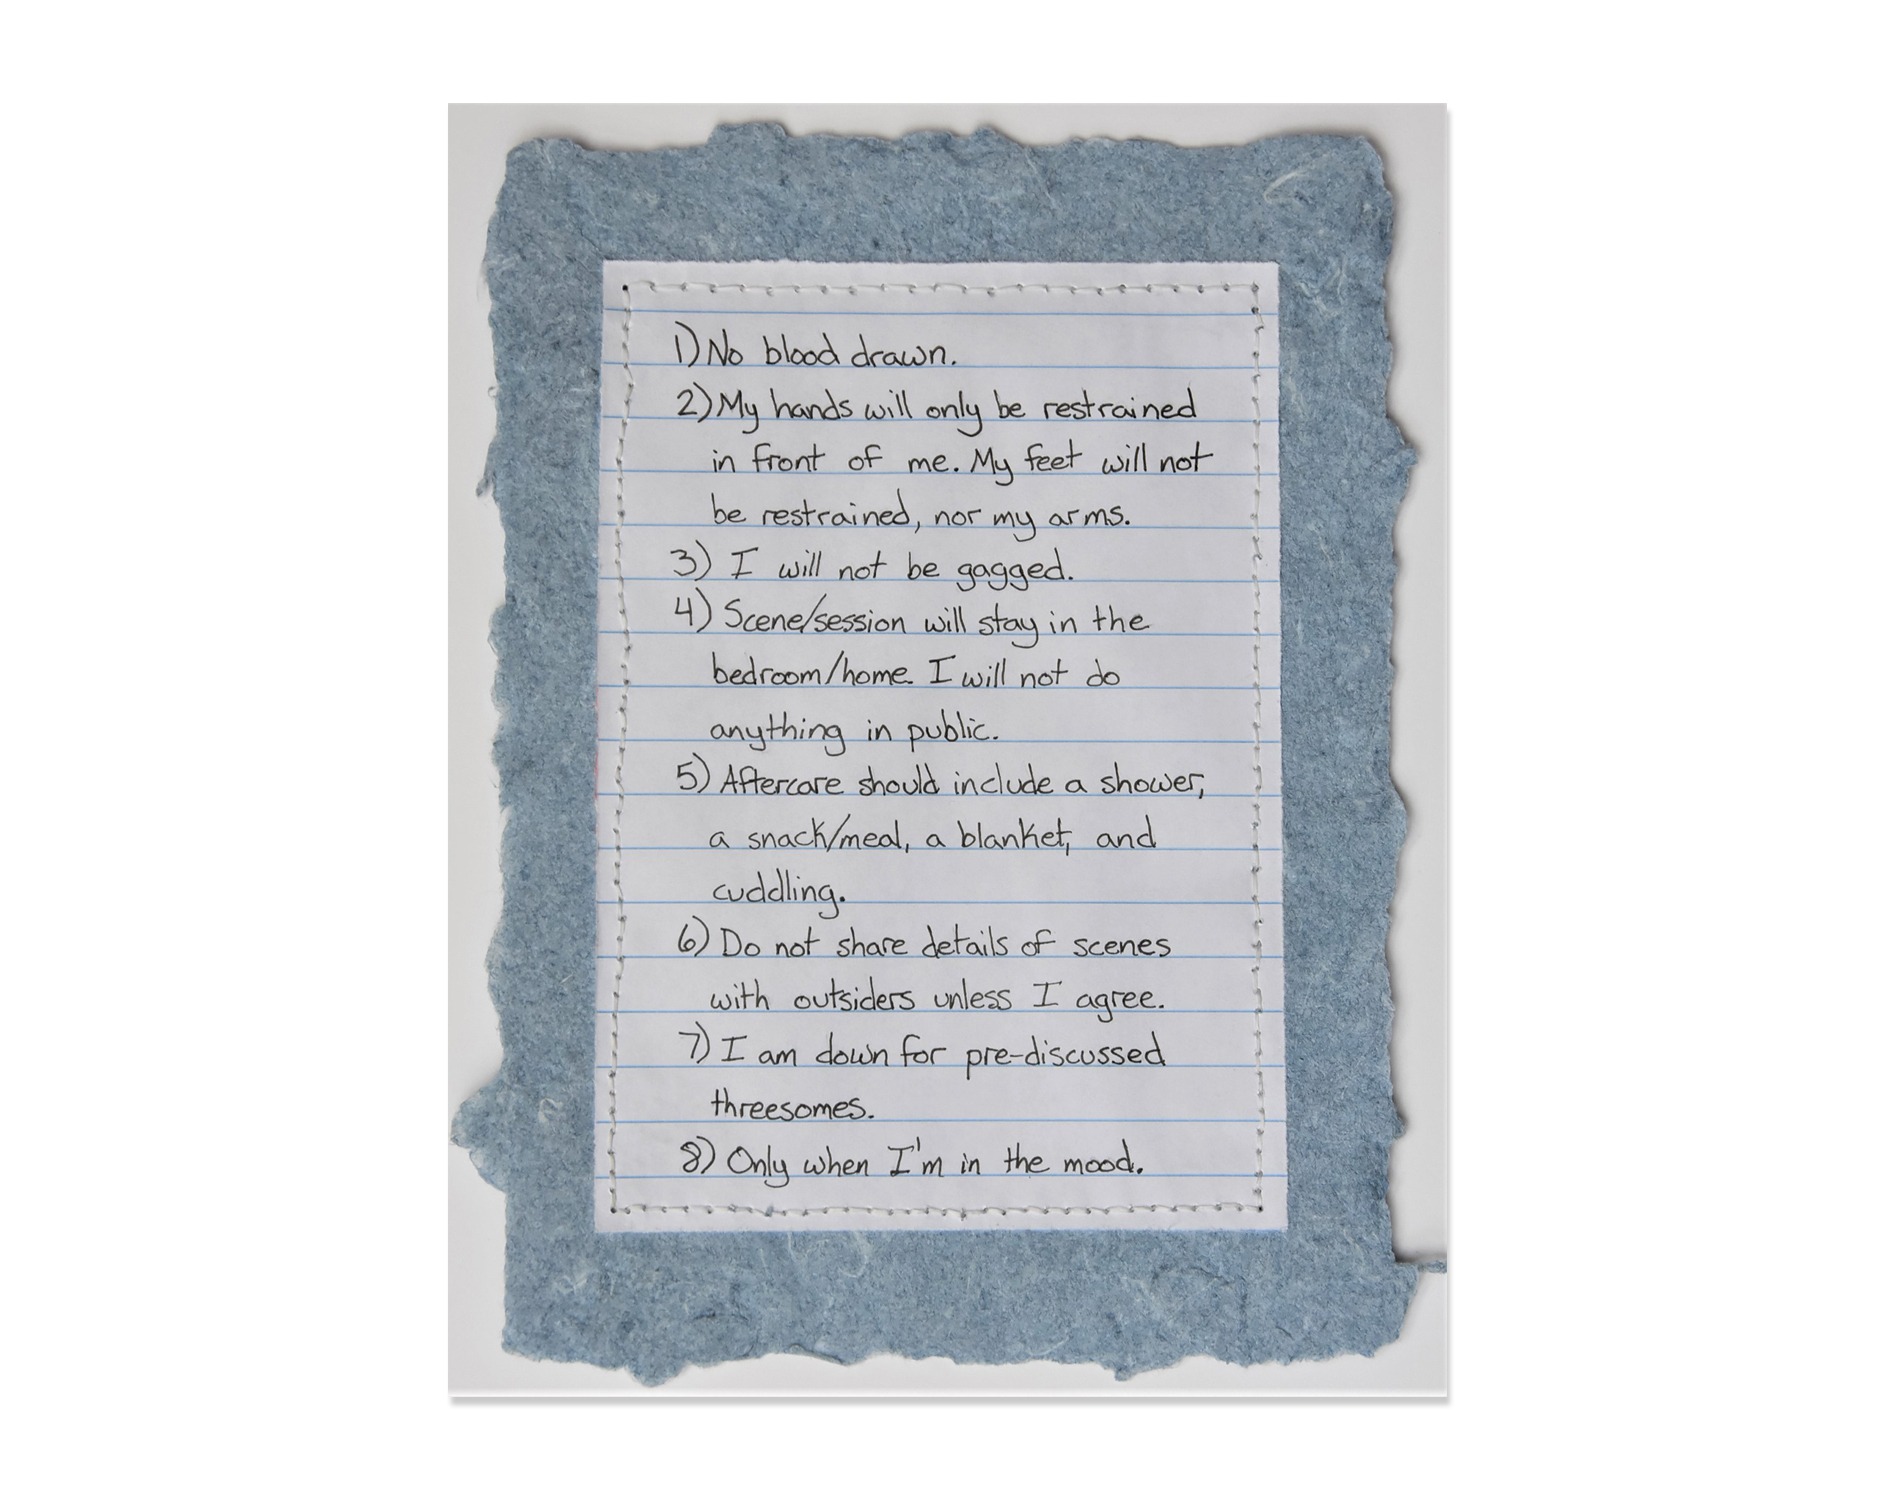 1) No blood drawn.
2) My hands will only be restrained
in front of me. My feet will not
be restrained, nor my arms.
3) I will not be gagged.
4) Scene/session will stay in the
bedroom/home. I will not do
anything in public.
5) Aftercare should include a shower,
a snack/meal, a blanket, and
cuddling.
6) Do not share details of scenes
with outsiders unless I agree.
7) I am down for pre-discussed
threesomes.
8) Only when I'm in the mood.